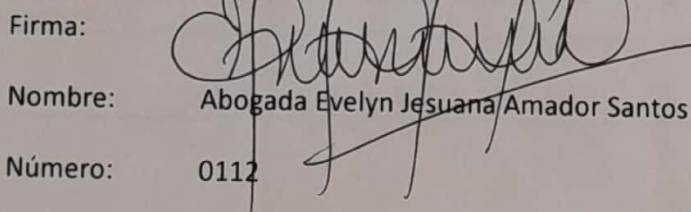 Firma:
Nombre: Abogada Evelyn Jesuana Amador Santos
Número: 0112